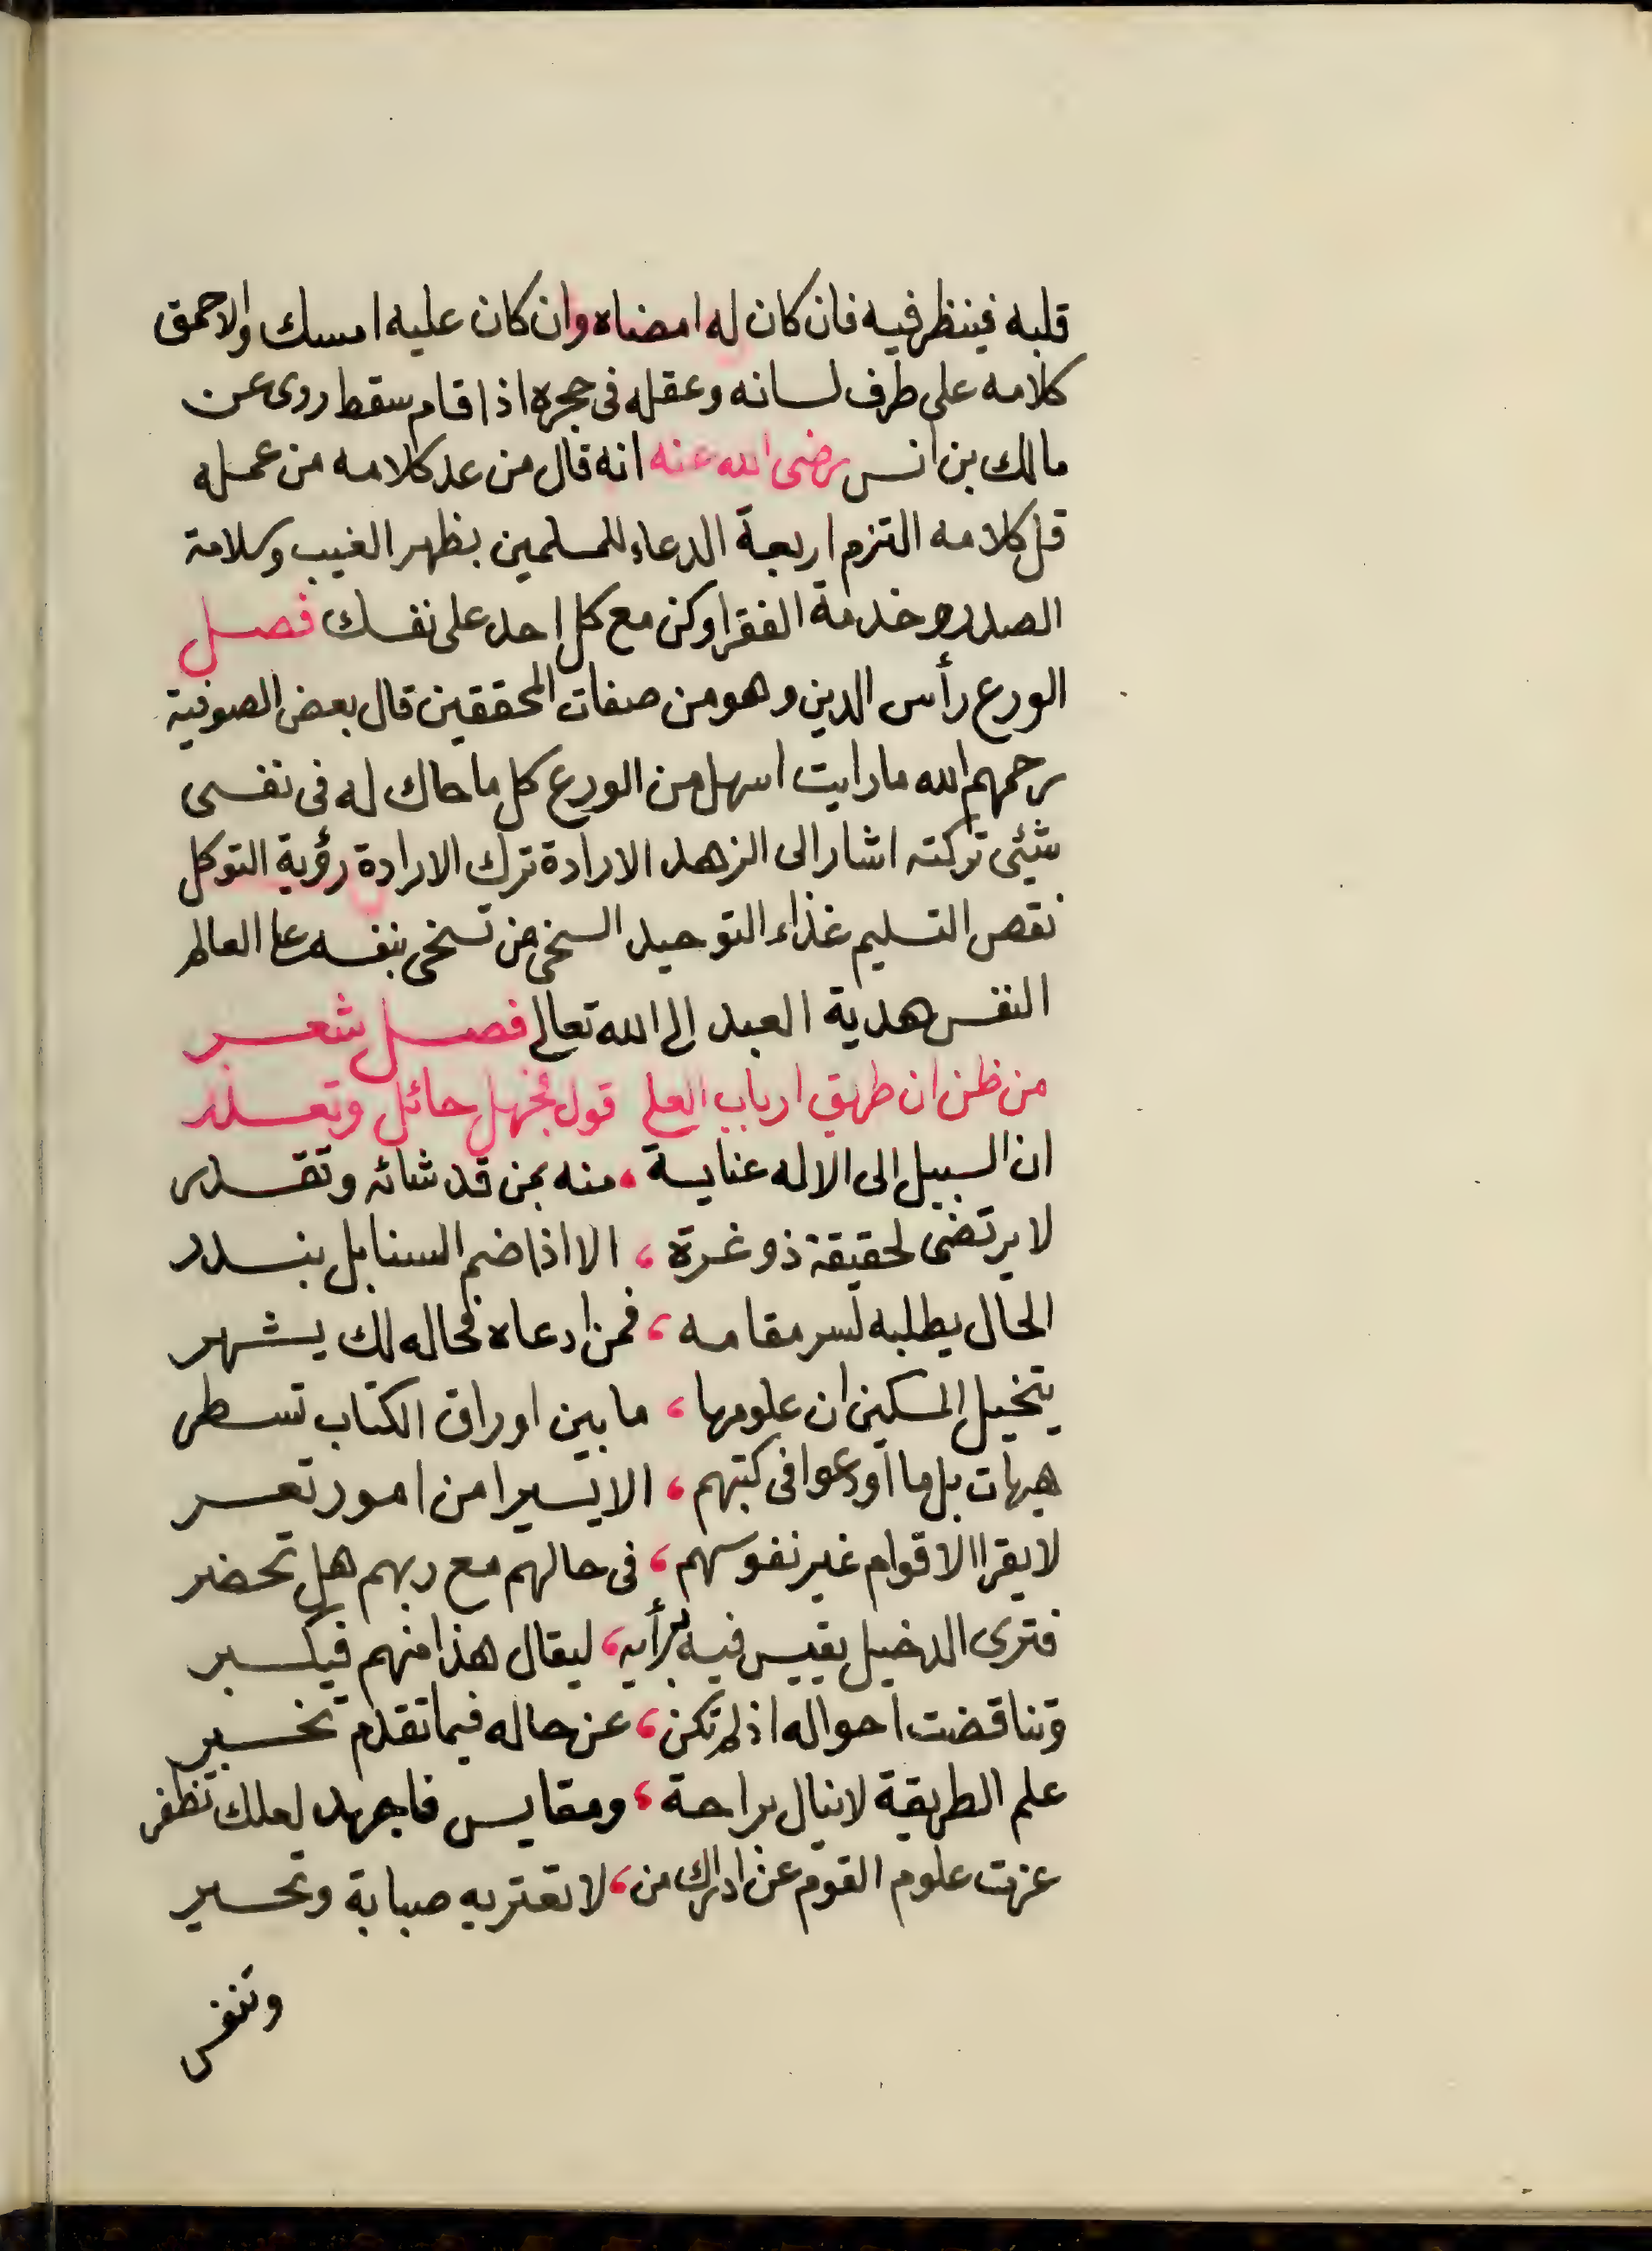 قلبه فينظر فيه فان كان له امضاه وان كان عليه امسك والاحمق
كلامه على طرف لسانه وعقله فى حجره اذا قام سقط روى عن
مالك بن انس رضى الله عنه انه قال من عد كلامه من عمله
قل كلامه التزم اربعة الدعاء للمسلمين بظهر الغيب وسلامة
الصدر وخدمة الفقرا وكن مع كل احد على نفسك فصل
الورع رأس الدين وهو من صفات المحققين قال بعض الصوفية
رحمهم الله ما رايت اسهل من الورع كل ما حاك له فى نفسى
شئى تركته اشار الى الزهد الارادة ترك الارادة رؤية التوكل
نقص التسليم غذاء التوحيد السخى من تسخى بنفسه على العالم
النفس هدية العبد الى الله تعالى فصل شعر
من ظن ان طريق ارباب العلى قول فجهل حائل وتعذر
ان السبيل الى الاله عناية، منه بمن قد شائه وتقدر
لا يرتضى لحقيقة ذو غرة، الا اذا ضم السنابل بندر
الحال يطلبه لسر مقامه، فمن ادعاه فحاله لك يشهر
يتخيل المسكين ان علومها، ما بين اوراق الكتاب تسطر
هيهات بل ما اودعوا فى كتبهم، الا يسيرا من امور تعسر
لا يقرا الاقوام غير نفوسهم، فى حالهم مع ربهم هل تحضر
فترى الدخيل يقيس فيه برأيه، ليقال هذا منهم فيكبر
وتناقضت احواله اذ لم تكن، عن حاله فيما تقدم تخبر
علم الطريقة لا ينال براحة، ومقايس فاجهد لعلك تظفر
عزت علوم القوم عن ادراك من، لا تعتريه صبابة وتحير
وتنفس